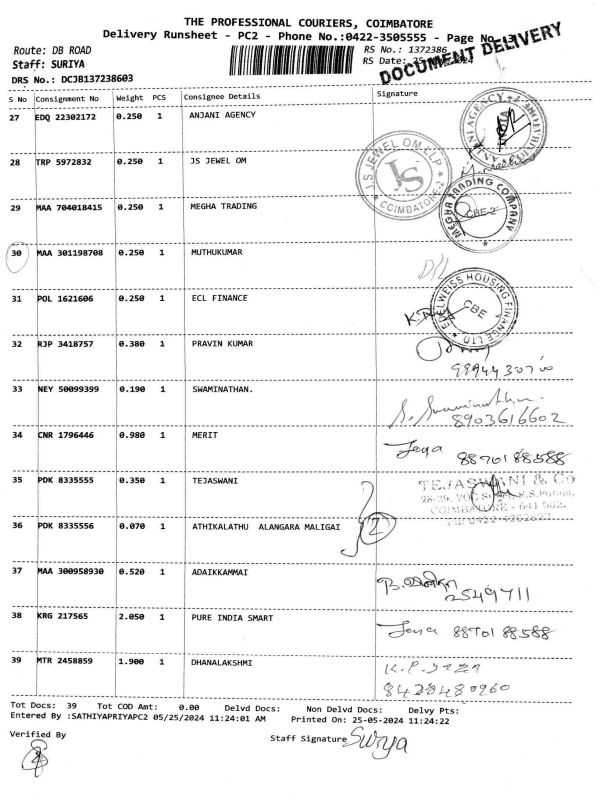 THE PROFESSIONAL COURIERS, COIMBATORE
Delivery Runsheet - PC2 - Phone No.:0422-3505555 - Page No. 3
Route: DB ROAD
RS No.: 1372386
Staff: SURIYA
RS Date: 25 2024
DOCUMENT DELIVERY
DRS No.: DCJB137238603
S No Consignment No Weight PCS Consignee Details Signature
27 EDQ 22302172 0.250 1 ANJANI AGENCY
ANJANI AGENCY
28 TRP 5972832 0.250 1 JS JEWEL OM
J.S JEWEL OM LLP
JS
COIMBATORE-2
29 MAA 704018415 0.250 1 MEGHA TRADING
MEGHA TRADING COMPANY
CBE-2
30 MAA 301198708 0.250 1 MUTHUKUMAR
31 POL 1621606 0.250 1 ECL FINANCE
EDELWEISS HOUSING FINANCE LTD
CBE
32 RJP 3418757 0.380 1 PRAVIN KUMAR
33 NEY 50099399 0.190 1 SWAMINATHAN.
S. Swaminathan.
8903616602
34 CNR 1796446 0.980 1 MERIT
Jeya 8870188588
35 PDK 8335555 0.350 1 TEJASWANI
TEJASWANI & Co
28-29, VOC
COIMBATORE - 641 002.
36 PDK 8335556 0.070 1 ATHIKALATHU ALANGARA MALIGAI
2
37 MAA 300958930 0.520 1 ADAIKKAMMAI
2549711
38 KRG 217565 2.050 1 PURE INDIA SMART
Jeya 8870188588
39 MTR 2458859 1.900 1 DHANALAKSHMI
Tot Docs: 39 Tot COD Amt: 0.00 Delvd Docs: Non Delvd Docs: Delvy Pts:
Entered By :SATHIYAPRIYAPC2 05/25/2024 11:24:01 AM Printed On: 25-05-2024 11:24:22
Verified By
Staff Signature Surya